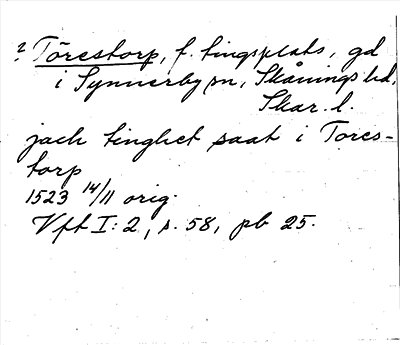 ? Törestorp, f. tingsplats, gd
i Synnerby sn, Skånings hd,
Skar. l.
jach tinghet saat i Tores-
torp
1523 14/11 orig.
Vft I: 2, s. 58, pb 25.